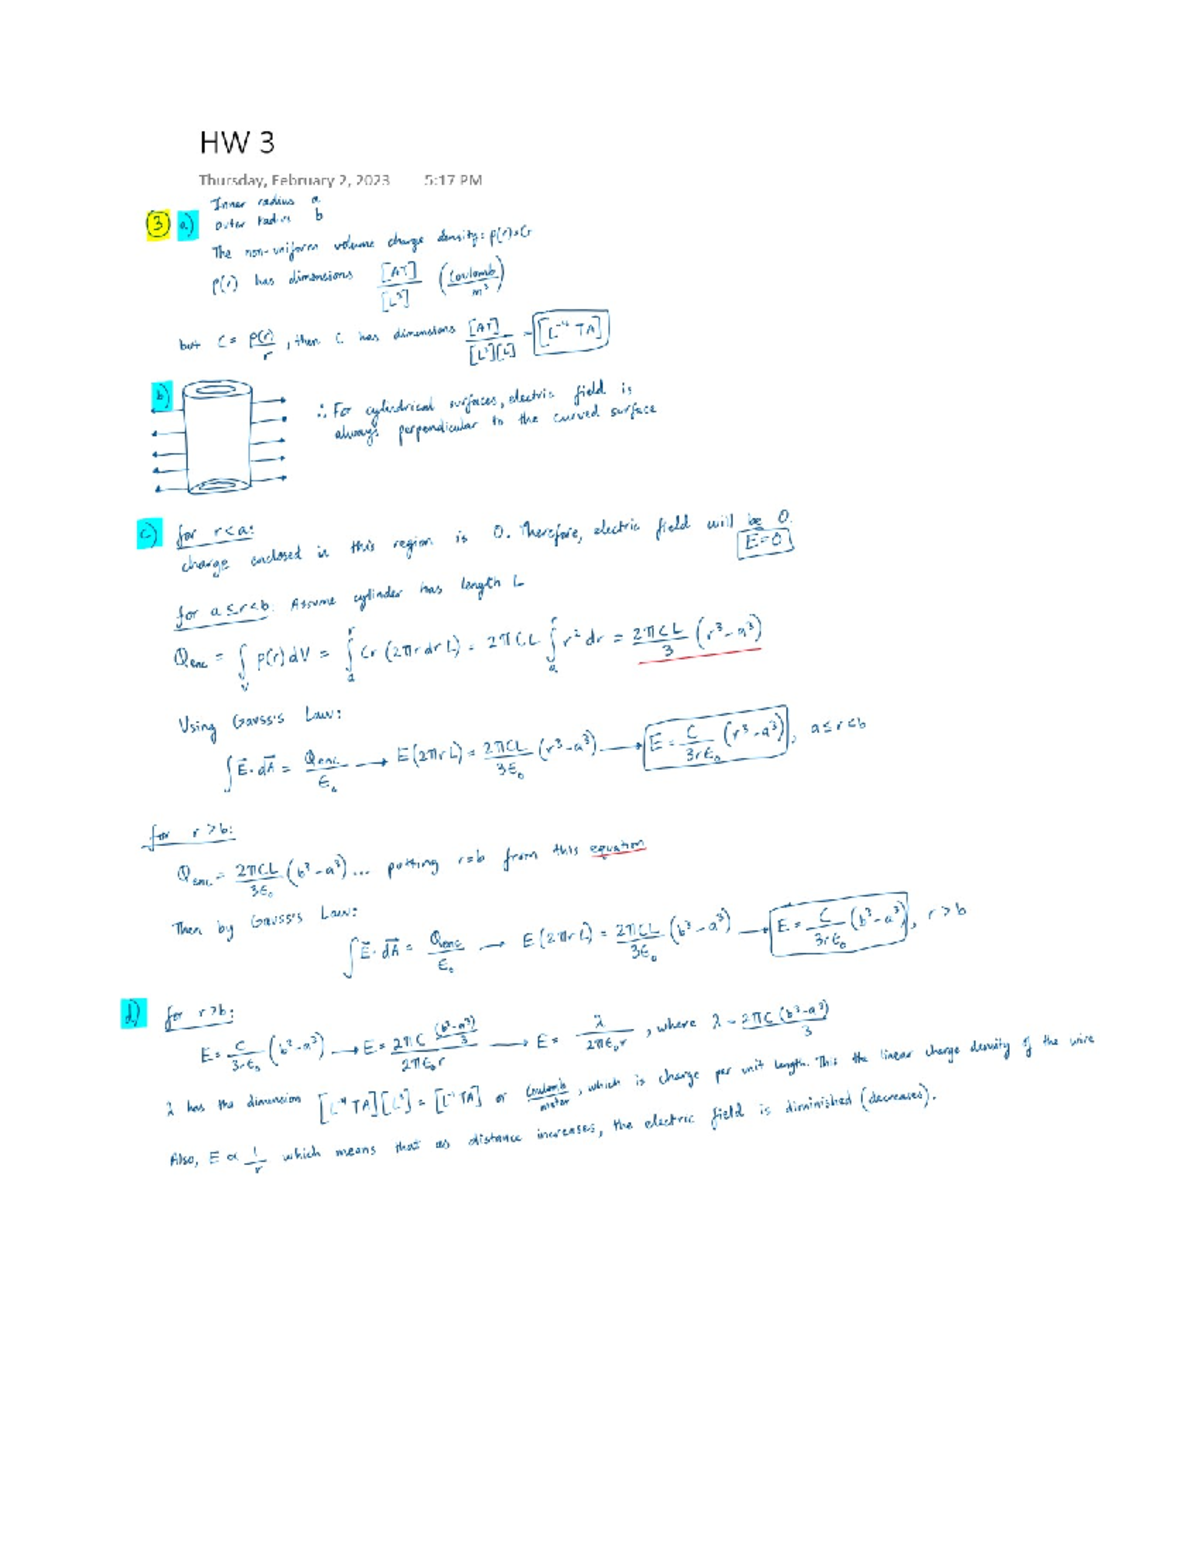 HW 3
Thursday, February 2, 2023 5:17 PM
3 a) Inner radius a
outer radius b
The non-uniform volume charge density: ρ(r)=Cr
ρ(r) has dimensions [AT]/[L³] (Coulomb/m³)
but C = ρ(r)/r, then C has dimensions [AT]/[L³][L] = [L⁻⁴ TA]
b)
∴ For cylindrical surfaces, electric field is
always perpendicular to the curved surface
c) for r<a:
charge enclosed in this region is 0. Therefore, electric field will be 0.
E=0
for a≤r<b: Assume cylinder has length L
Qenc = ∫_V ρ(r)dV = ∫_a^r Cr(2πrdrL) = 2πCL ∫_a^r r²dr = 2πCL/3 (r³-a³)
Using Gauss's Law:
∫E⃗·dA⃗ = Qenc/ε₀ → E(2πrL) = 2πCL/3ε₀ (r³-a³) → E = C/3rε₀ (r³-a³), a≤r<b
for r>b:
Qenc = 2πCL/3ε₀ (b³-a³)... putting r=b from this equation
Then by Gauss's Law:
∫E⃗·dA⃗ = Qenc/ε₀ → E(2πrL) = 2πCL/3ε₀ (b³-a³) → E = C/3rε₀ (b³-a³), r>b
d) for r>b:
E = C/3rε₀ (b³-a³) → E = 2πC (b³-a³)/3 / 2πε₀r → E = λ/2πε₀r, where λ = 2πC(b³-a³)/3
λ has the dimension [L⁻⁴TA][L³] = [L⁻¹TA] or Coulomb/meter, which is charge per unit length. This the linear charge density of the wire
Also, E ∝ 1/r which means that as distance increases, the electric field is diminished (decreases).